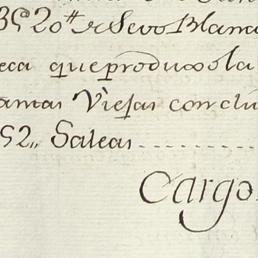 3520 tt de Sevo Blanc
eca que produxo la
amas Viejas conclu
52,, Saleas
Cargo